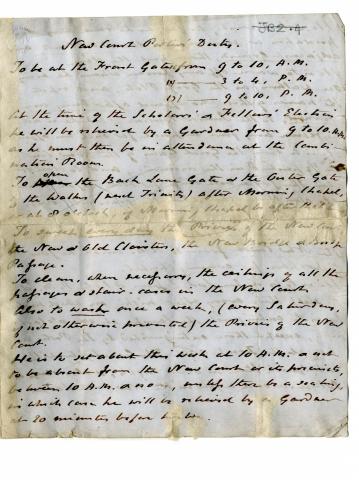 JB2.4
New Court Porters' Duties.
To be at the Front Gate, from 9 to 10, A.M.
3 to 4, P.M.
9 to 10, P.M.
At the time of the Scholars' & Fellows' Election
he will be relieved by a Gardener from 9 to 10 A.M.
as he must then be in attendance at the Combi
nation Room.
To open the Back Lane Gate & the Outer Gate
of the Walks (next Trinity) after Morning Chapel,
or at 8 o'clock, if Morning Chapel be after that
To sweep every day the Privies of the New Court
the New & Old Cloisters, the New Bridge &
Passage.
To clean, when necessary, the ceilings of all the
passages & stair-cases in the New Court.
Also to wash once a week, (every Saturday,
if not otherwise prevented) the Privies of the New
Court.
He is to set about this work at 10 A.M. & not
to be absent from the New Court or its precincts,
between 10 A.M. & noon, unless there be a
in which case he will be relieved by a Gardener
at 20 minutes before